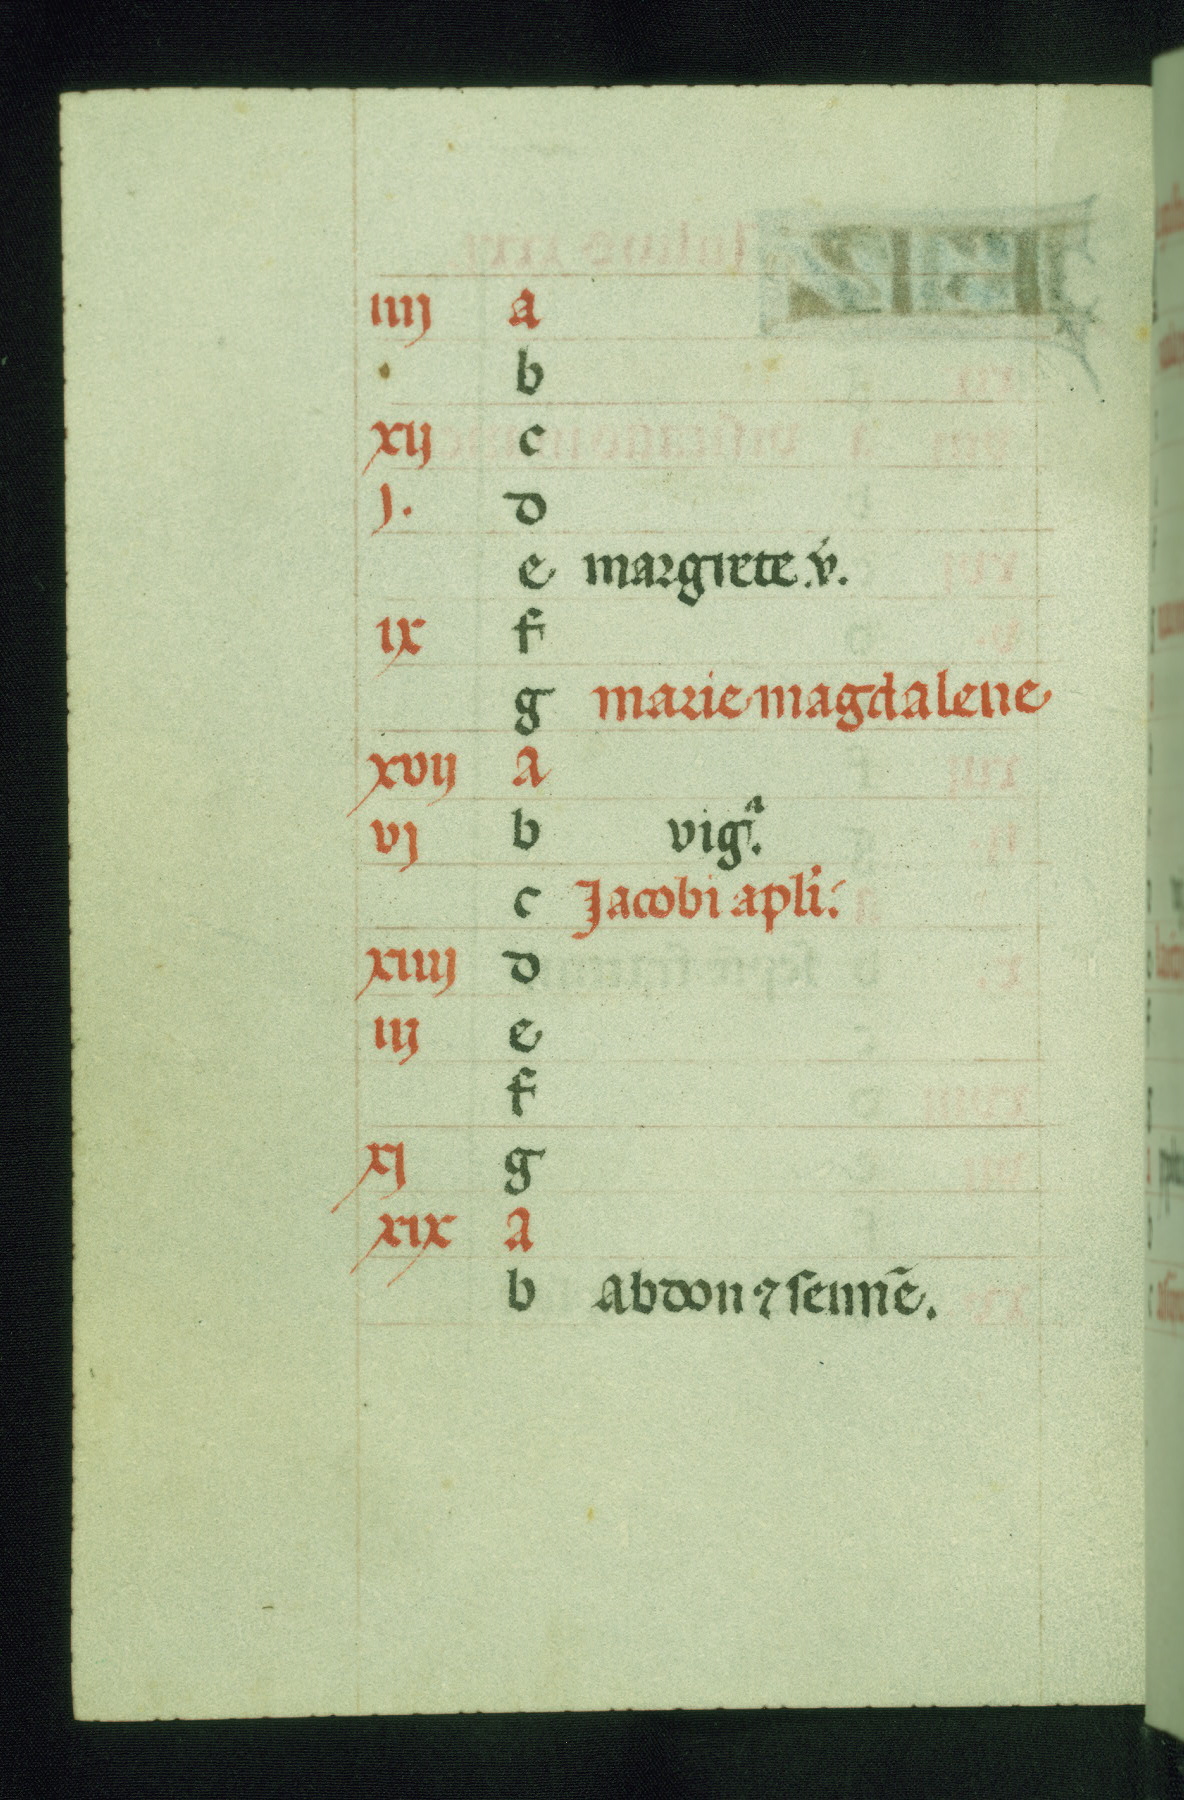 iiij a
b
xij c
j. d
e margrete .v.
ix f
g marie magdalene
xvij a
vj b vigᵃ.
c Jacobi apli.
xiiij d
iij e
f
xj g
xix a
b abdon ⁊ sennē.